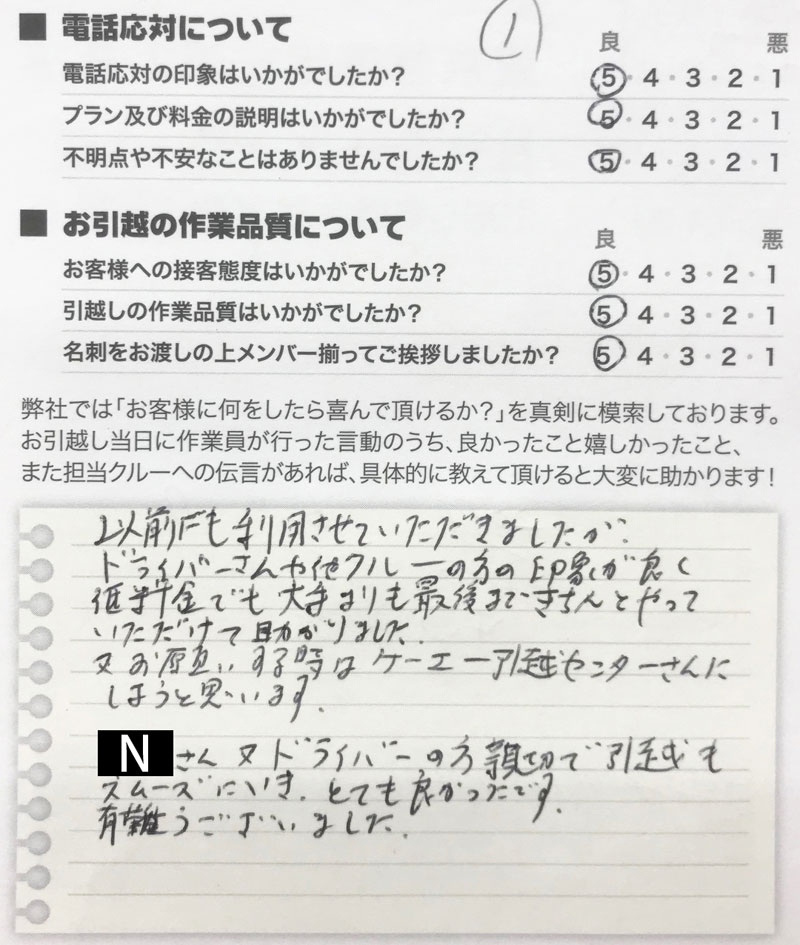 ■ 電話応対について
①
良 悪
電話応対の印象はいかがでしたか? 5・4・3・2・1
プラン及び料金の説明はいかがでしたか? 5・4・3・2・1
不明点や不安なことはありませんでしたか? 5・4・3・2・1
■ お引越の作業品質について
良 悪
お客様への接客態度はいかがでしたか? 5・4・3・2・1
引越しの作業品質はいかがでしたか? 5・4・3・2・1
名刺をお渡しの上メンバー揃ってご挨拶しましたか? 5・4・3・2・1
弊社では「お客様に何をしたら喜んで頂けるか?」を真剣に模索しております。
お引越し当日に作業員が行った言動のうち、良かったこと嬉しかったこと、
また担当クルーへの伝言があれば、具体的に教えて頂けると大変に助かります!
以前にも利用させていただきましたが、
ドライバーさんや他クルーの方の印象が良く
低料金でも大手よりも最後まできちんとやって
いただけて助かりました。
又お願いする時はケーエー引越センターさんに
しようと思います。
N さん又ドライバーの方親切で引越も
スムーズにいき、とても良かったです。
有難うございました。